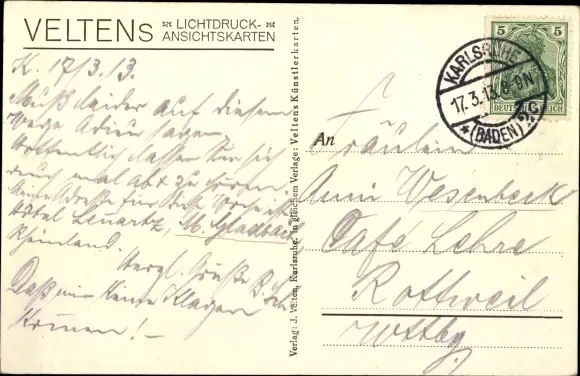 VELTENS LICHTDRUCK-
ANSICHTSKARTEN
K. 17/3.13.
Muß leider auf diesem
Wege Adieu sagen
Hoffentlich lassen Sie sich
auch mal
Hotel Lenartz, M. Gladbach
Rheinland.
Herzl. Grüße
Daß mir keine Klagen
kommen!–
Verlag: J. Velten, Karlsruhe. In gleichem Verlage: Veltens Künstlerkarten.
5 5
DEUTSCHES REICH
KARLSRUHE
17.3.13. 8-9N
*(BADEN)
An
Fräulein
Wesenbeck
Café Lehre
Rottweil
Wttbg.